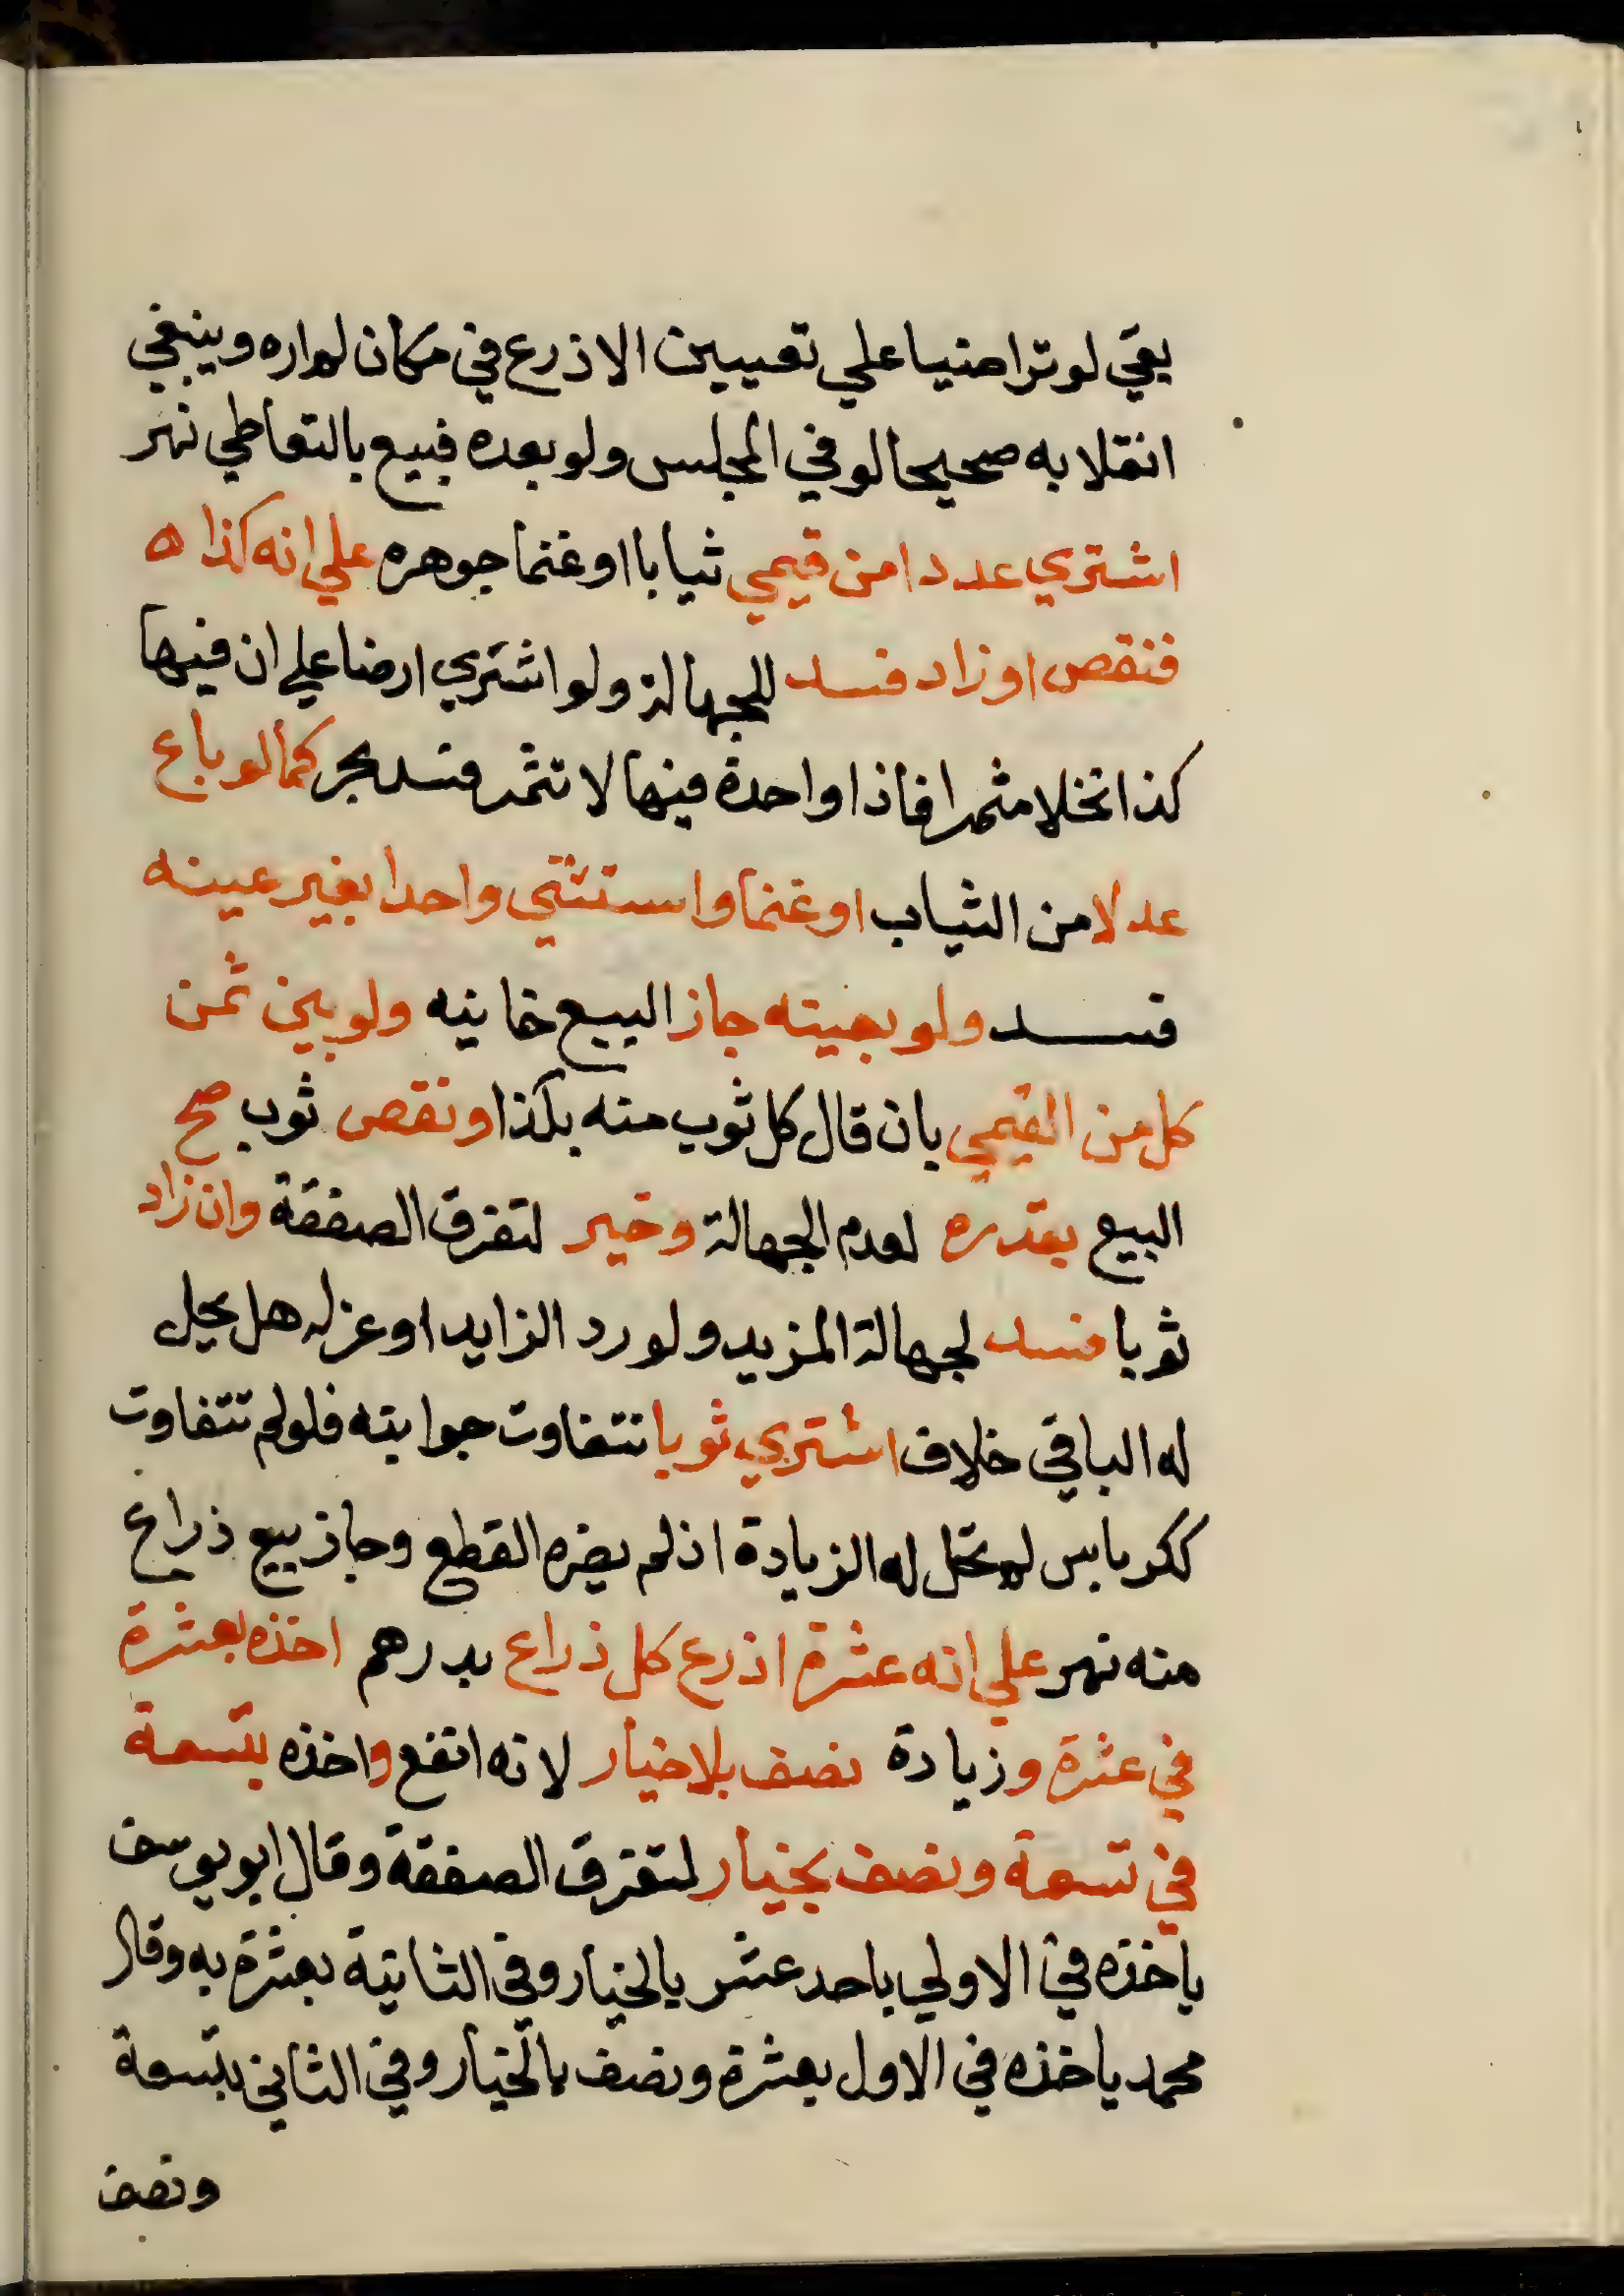 بقي لو تراضيا علي تعيين الاذرع في مكان لم اره وينبغي
انقلابه صحيحا لو في المجلس ولو بعده فبيع بالتعاطي نهر
اشتري عددا من قيمي ثيابا او غنما جوهره علي انه كذا ه
فنقص او زاد فسد للجهالة ولو اشتري ارضا علي ان فيها
كذا نخلا مثمرا فاذا واحدة فيها لا تثمر فسد بحر كما لو باع
عدلا من الثياب او غنما واستثني واحدا بغير عينه
فسد ولو بعينه جاز البيع خانيه ولو بين ثمن
كل من القيمي بان قال كل ثوب منه بكذا ونقص ثوب صح
البيع بقدره لعدم الجهالة وخير لتفرق الصفقة وان زاد
ثوبا فسد لجهالة المزيد ولو رد الزايد او عزله هل يحل
له الباقي خلاف اشتري ثوبا تتفاوت جوانبه فلو لم تتفاوت
ككرباس لم تحل له الزيادة اذ لم يضره القطع وجاز بيع ذراع
منه نهر علي انه عشرة اذرع كل ذراع بدرهم اخذه بعشرة
في عشرة وزيادة نصف بلا خيار لانه انفع واخذه بتسعة
في تسعة ونصف بخيار لتفرق الصفقة وقال ابو يوسف
ياخذه في الاولي باحد عشر بالخيار وفي الثانية بعشرة به وقال
محمد ياخذه في الاول بعشرة ونصف بالخيار وفي الثاني بتسعة
ونصف